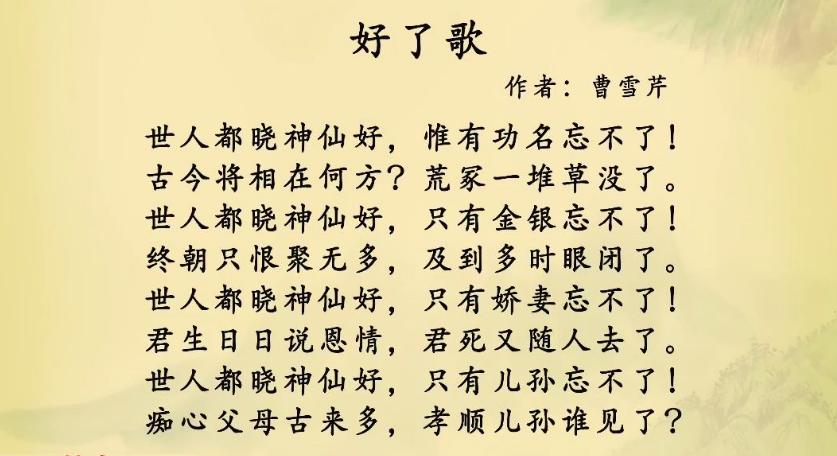 好了歌
作者：曹雪芹
世人都晓神仙好，惟有功名忘不了！
古今将相在何方？荒冢一堆草没了。
世人都晓神仙好，只有金银忘不了！
终朝只恨聚无多，及到多时眼闭了。
世人都晓神仙好，只有娇妻忘不了！
君生日日说恩情，君死又随人去了。
世人都晓神仙好，只有儿孙忘不了！
痴心父母古来多，孝顺儿孙谁见了？